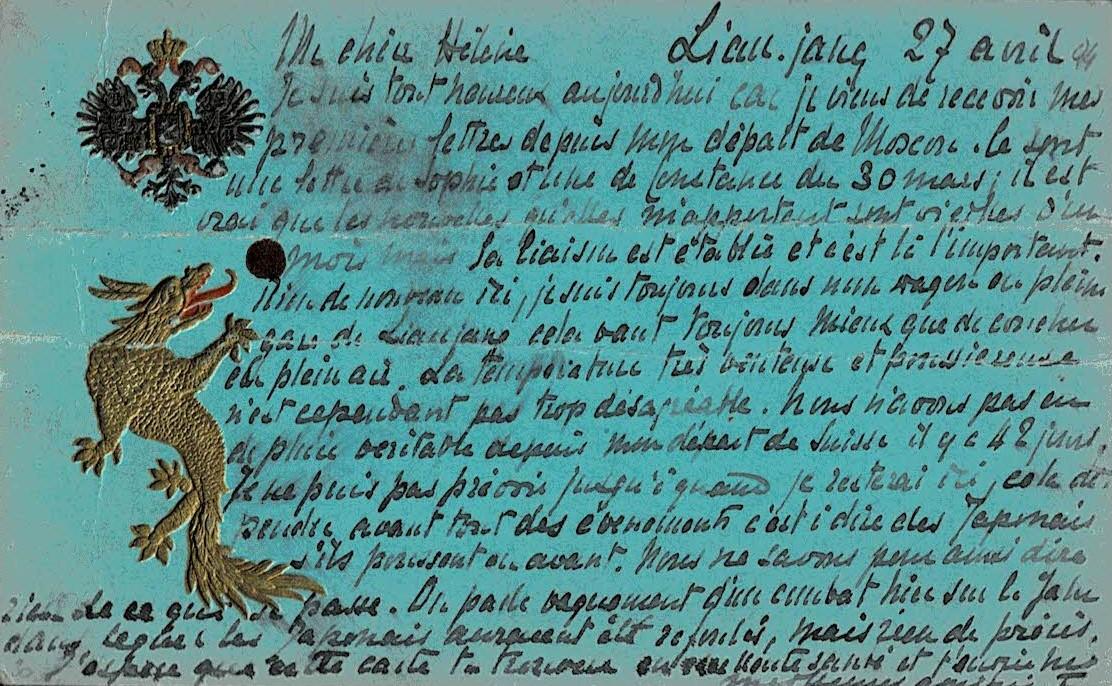 Ma chère Hélène Liau-jang 27 avril 04
Je suis tout heureux aujourd'hui car je viens de recevoir mes
premières lettres depuis mon départ de Moscou. Ce sont
une lettre de Sophie et une de Constance du 30 mars; il est
vrai que les nouvelles qu'elles m'apportent sont vieilles d'un
mois mais la liaison est établie et c'est là l'important.
Rien de nouveau ici, je suis toujours dans mon wagon en pleine
gare de Liaujang cela vaut toujours mieux que de coucher
en plein air. La température très venteuse et poussiereuse
n'est cependant pas trop désagréable. Nous n'avons pas eu
de pluie veritable depuis mon départ de Suisse il y a 42 jours.
Je ne puis pas prévoir jusqu'à quand je resterai ici, cela dé-
pendra avant tout des évenements c'est à dire des Japonais
s'ils poussent en avant. Nous ne savons pour ainsi dire
rien de ce qui se passe. On parle vaguement d'un combat hier sur le Jalu
dans lequel les Japonais auraient été repoussés, mais rien de précis.
J'espère que cette carte te trouvera en santé et